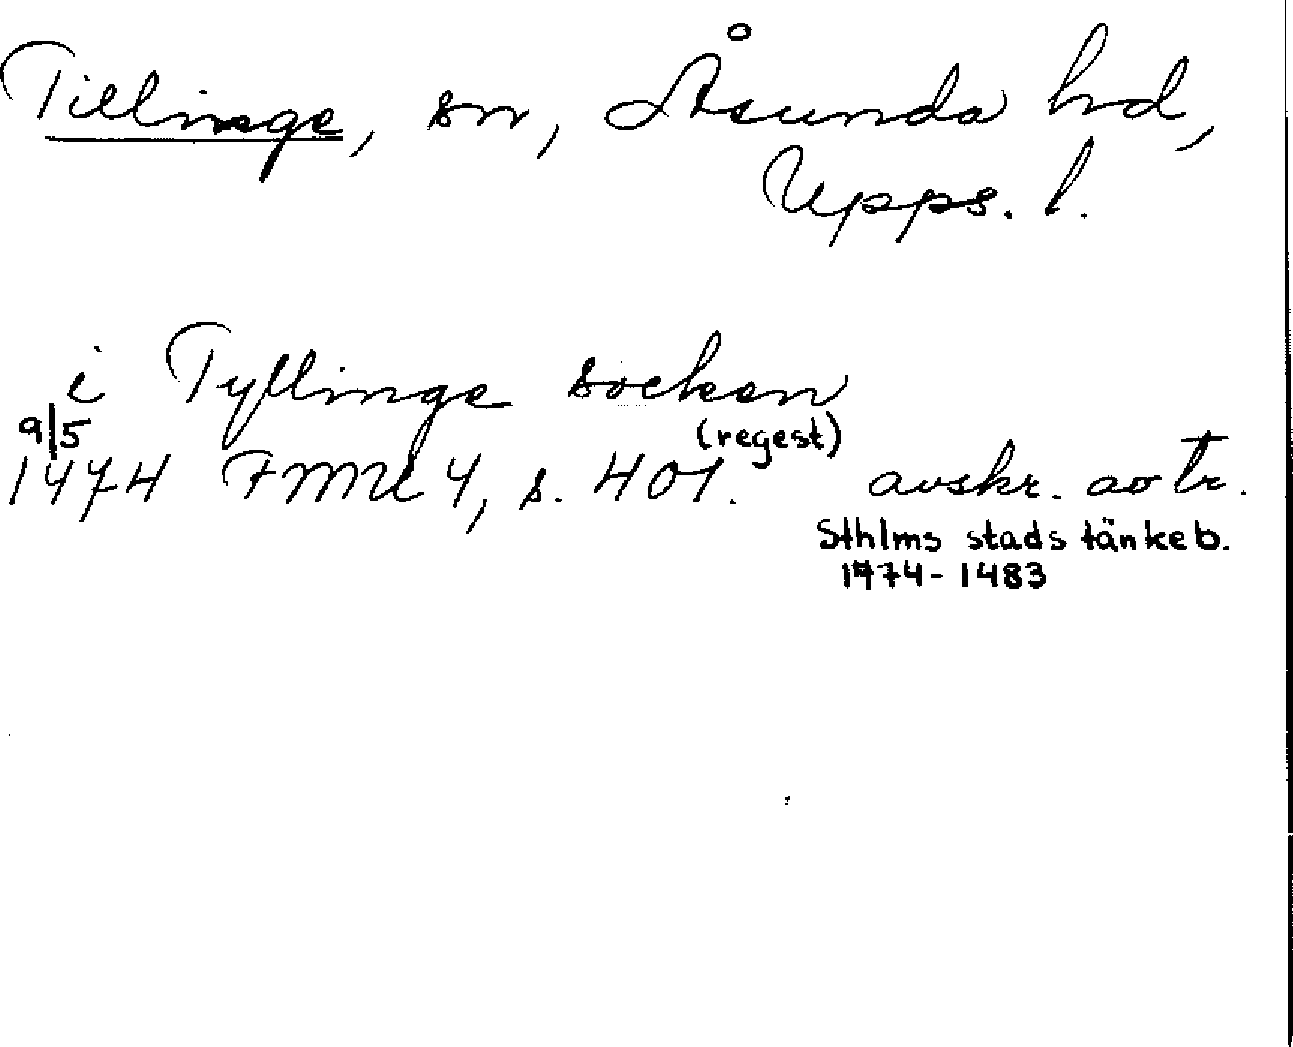 Tillinge, sn, Åsunda hd,
Upps. l.
i Tyllinge socken
9/5
(regest)
1474 FMU 4, s. 401. avskr. ao tr.
Sthlms stads tänkeb.
1474-1483